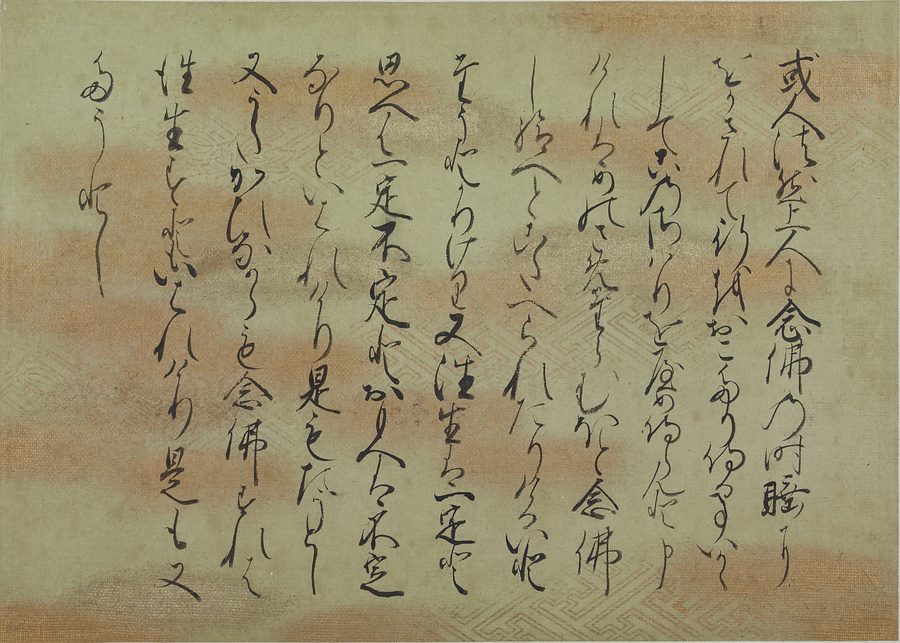 或人法然上人に念佛の時睡に
をかされて行をおこたり侍る事いかゝ
してこのさはりをやめ侍らんと申
けれはめのさめたらむほと念佛
し給へとこたへられたりけるいと
たうとかりけり又往生は一定と
思へは一定不定とおもへは不定
なりといはれけり是もたうとし
又うたかひなからも念佛すれは
往生すともいはれけり是も又
たうとし